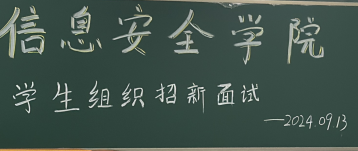 信息安全学院
学生组织招新面试
—2024.09.13